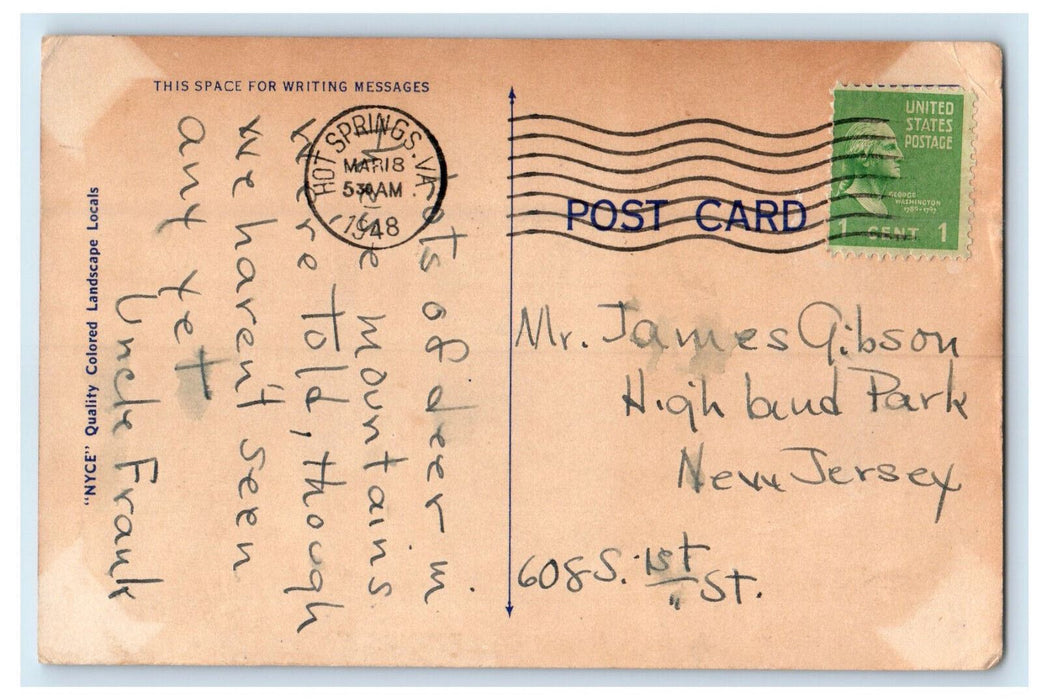 THIS SPACE FOR WRITING MESSAGES
Lots of deer in
these mountains
we're told, though
we haven't seen
any yet
Uncle Frank
"NYCE" Quality Colored Landscape Locals
HOT SPRINGS. VA.
MAR 18
530 AM
1948
POST CARD
UNITED
STATES
POSTAGE
GEORGE
WASHINGTON
1789-1797
1 CENT 1
Mr. James Gibson
Highland Park
New Jersey
608 S. 1st St.